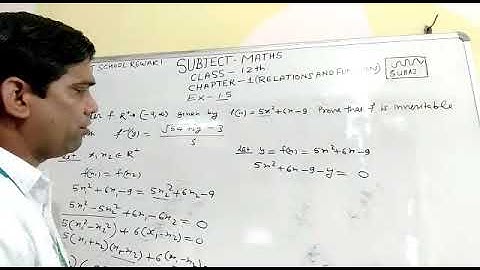 SCHOOL REWARI
SUBJECT- MATHS
CLASS- 12th
CHAPTER-1 (RELATIONS AND FUNCTION)
SURAJ
EX- 1.5
f: R⁺→ [-9,∞) given by f(x) = 5x²+6x-9 Prove that f is invertible
f⁻¹(y) = (√54+5y - 3)/5
Let x₁, x₂ ∈ R⁺
f(x₁) = f(x₂)
5x₁²+6x₁-9 = 5x₂²+6x₂-9
5x₁²-5x₂²+6x₁-6x₂ = 0
5(x₁²-x₂²)+6(x₁-x₂) = 0
5(x₁+x₂)(x₁-x₂)+6(x₁-x₂)=
Let y = f(x) = 5x²+6x-9
5x²+6x-9-y = 0